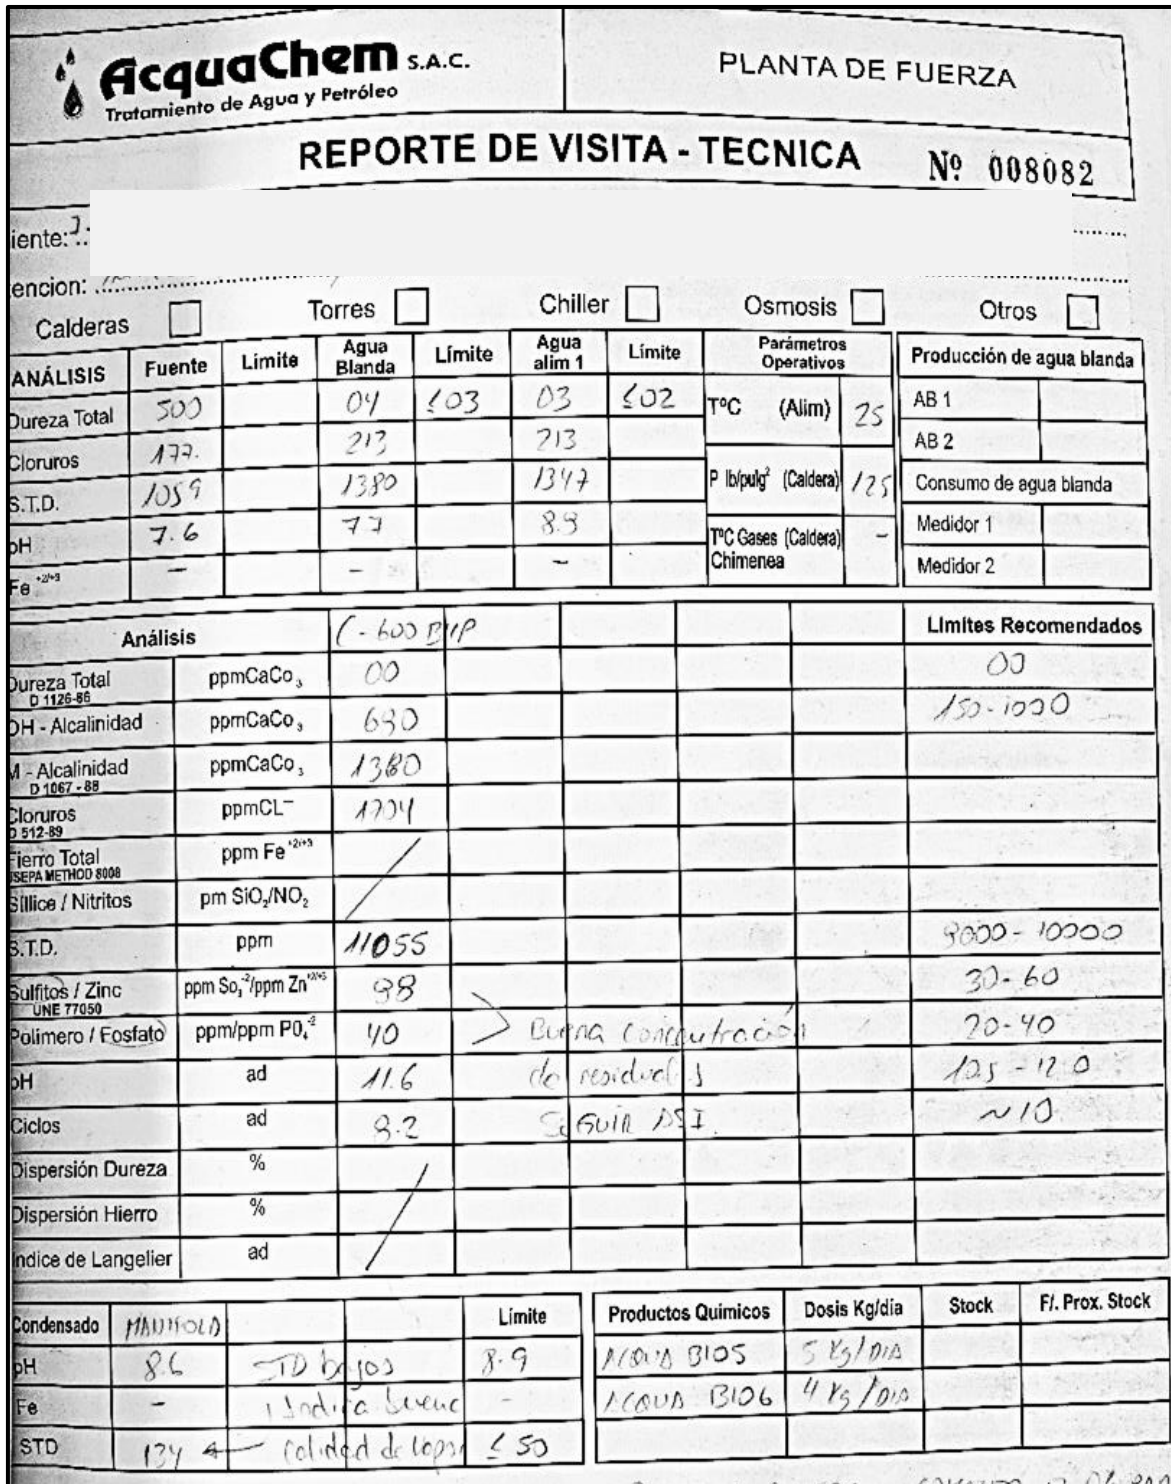 AcquaChem S.A.C.
Tratamiento de Agua y Petróleo
PLANTA DE FUERZA
REPORTE DE VISITA - TECNICA Nº 008082
iente:
encion:
Calderas Torres Chiller Osmosis Otros
ANÁLISIS Fuente Limite Agua Blanda Límite Agua alim 1 Limite Parámetros Operativos Producción de agua blanda
Dureza Total 500 04 ≤03 03 ≤02 TºC (Alim) 25 AB 1
Cloruros 177. 213 213 AB 2
S.T.D. 1059 1380 1347 P lb/pulg² (Caldera) 125 Consumo de agua blanda
pH 7.6 7.7 8.9 TºC Gases (Caldera) Chimenea - Medidor 1
Fe +2/+3 - - - Medidor 2
Análisis C-600 BHP Limites Recomendados
Dureza Total D 1126-86 ppmCaCo₃ 00 00
OH - Alcalinidad ppmCaCo₃ 690 150-1000
M - Alcalinidad D 1067 - 88 ppmCaCo₃ 1380
Cloruros D 512-89 ppmCL⁻ 1704
Fierro Total USEPA METHOD 8008 ppm Fe +2/+3
Síllice / Nitritos pm SiO₂/NO₂
S.T.D. ppm 11055 9000-10000
Sulfitos / Zinc UNE 77050 ppm So₃⁻²/ppm Zn 98 30-60
Polimero / Fosfato ppm/ppm P0₄⁻² 40 Buena concentración 20-40
pH ad 11.6 de residuales 10.5 - 12.0
Ciclos ad 8.2 SEGUIR ASI. ~10
Dispersión Dureza %
Dispersión Hierro %
Indice de Langelier ad
Condensado MANIFOLD Límite
pH 8.6 STD bajos 8.9
Fe - Indica buena -
STD 134 ← calidad de vapor ≤50
Productos Quimicos Dosis Kg/día Stock F/. Prox. Stock
ACQUA B105 5 Kg/DIA
ACQUA B106 4 Kg/DIA